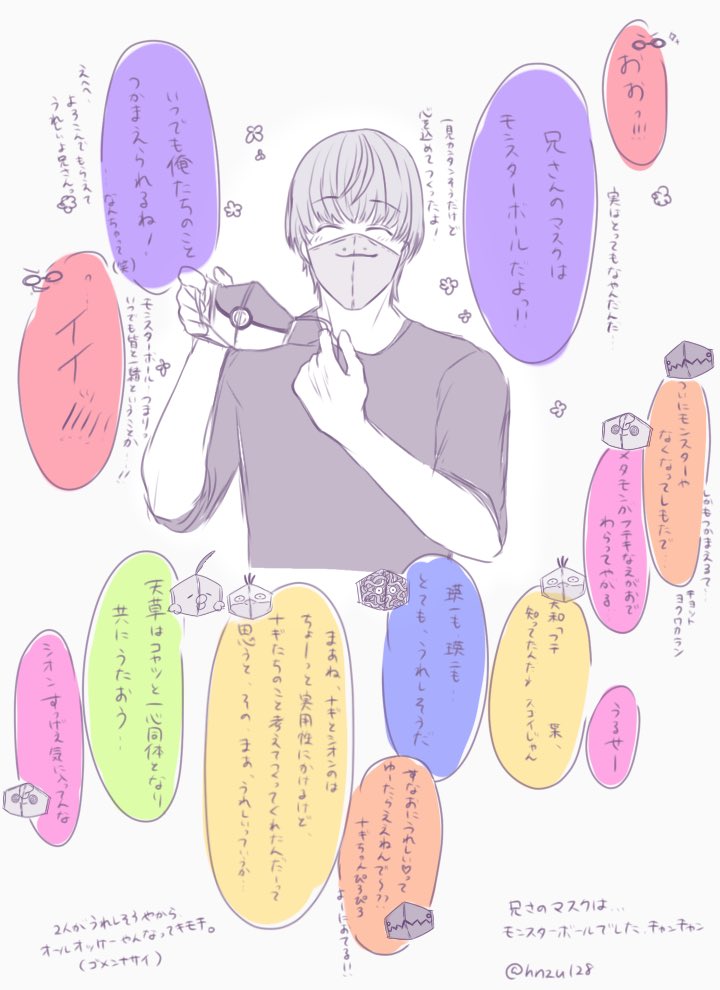 おおっ!!!
兄さんのマスクは
モンスターボールだよっ!!
実はとってもなやんだんだ…
一見カンタンそうだけど
心を込めてつくったよ!
いつでも俺たちのこと
つかまえられるね!
…なんちゃって(笑)
えへへ、
よろこんでもらえて
うれしいよ兄さんっ
っ…イイッ!!!!
モンスターボール…つまりっ
いつでも皆と一緒ということか…!!
ついにモンスターや
なくなってしもたで…
しかもつかまえるて…
キョット
ヨクワカラン
メタモンがフテキなえがおで
わらってやがる
うるせー
大和っフテ
知ってたんだ
果、
スゴイじゃん
瑛一も瑛二も…
とても、うれしそうだ
すなおにうれしい♡って
ゆーたらええねんで〜??
ナギちゃんぴろぴろ
よーにあてるい
まあね、ナギとシオンのは
ちょーっと実用性にかけるけど、
ナギたちのこと考えてつくってくれたんだーって
思うて、その、まあ、うれしいっていうか…
天草はコヤツと一心同体となり
共にうたおう…
シオンすっげえ気に入ってんな
2人がうれしそうやから
オールオッケーやんなってキモチ。
(ゴメンナサイ)
兄さのマスクは…
モンスターボールでした.チャンチャン
@hnzu128